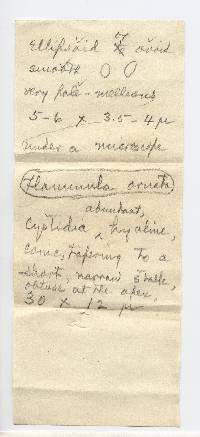 Ellipsoid to ovoid
smooth
very pale-melleous
5-6 x 3.5-4 µ
under a microscope
Flammula ornata
abundant,
Cystidia ^ hyaline,
conic, tapering to a
short, narrow stalk,
obtuse at the apex,
30 x 12 µ